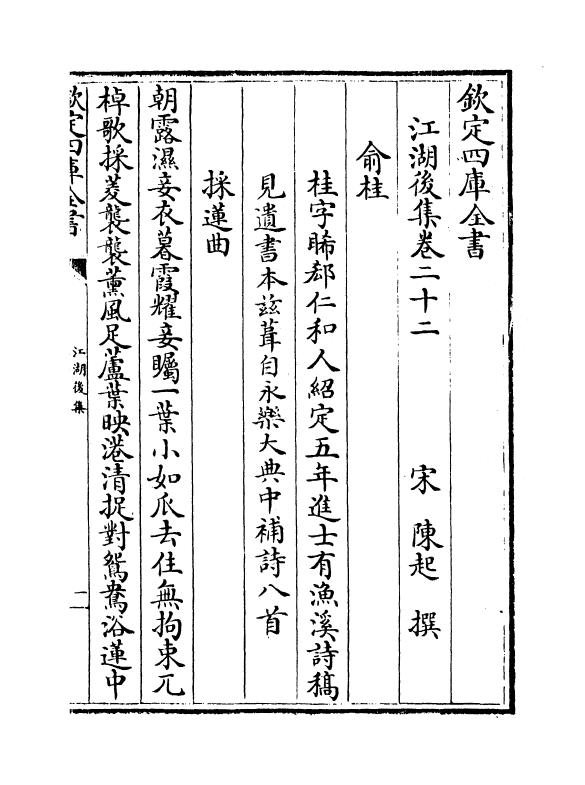 欽定四庫全書
江湖後集卷二十二　宋　陳起　撰
俞桂
桂字晞郄仁和人紹定五年進士有漁溪詩稿
見遺書本兹葺自永樂大典中補詩八首
採蓮曲
朝露濕妾衣暮霞耀妾矚一葉小如瓜去住無拘束兀
棹歌採菱襲襲薰風足蘆葉映港清捉對鴛鴦浴蓮中
欽定四庫全書
江湖後集